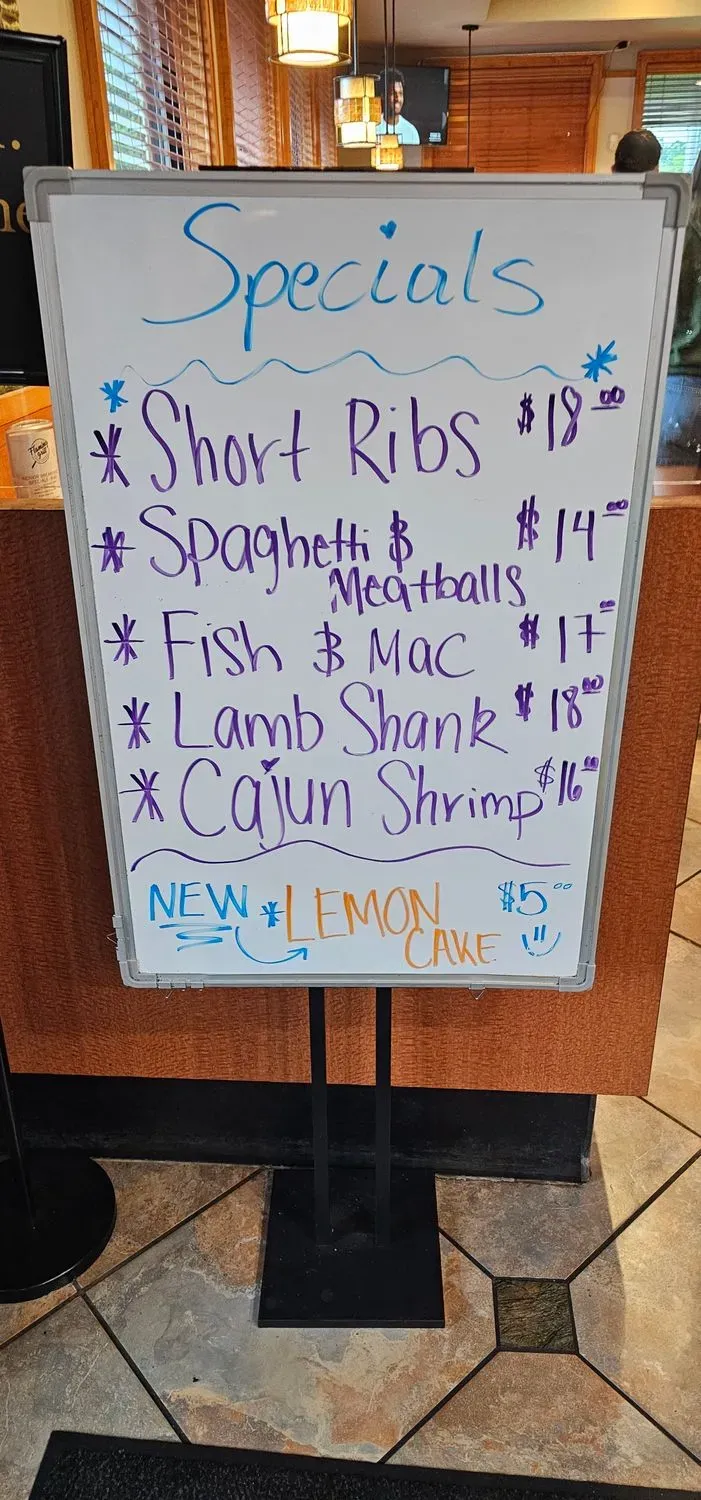 Specials
* Short Ribs $18.00
* Spaghetti &
Meatballs $14.00
* Fish & Mac $17
* Lamb Shank $18.00
* Cajun Shrimp $16.00
NEW * LEMON
CAKE $5.00